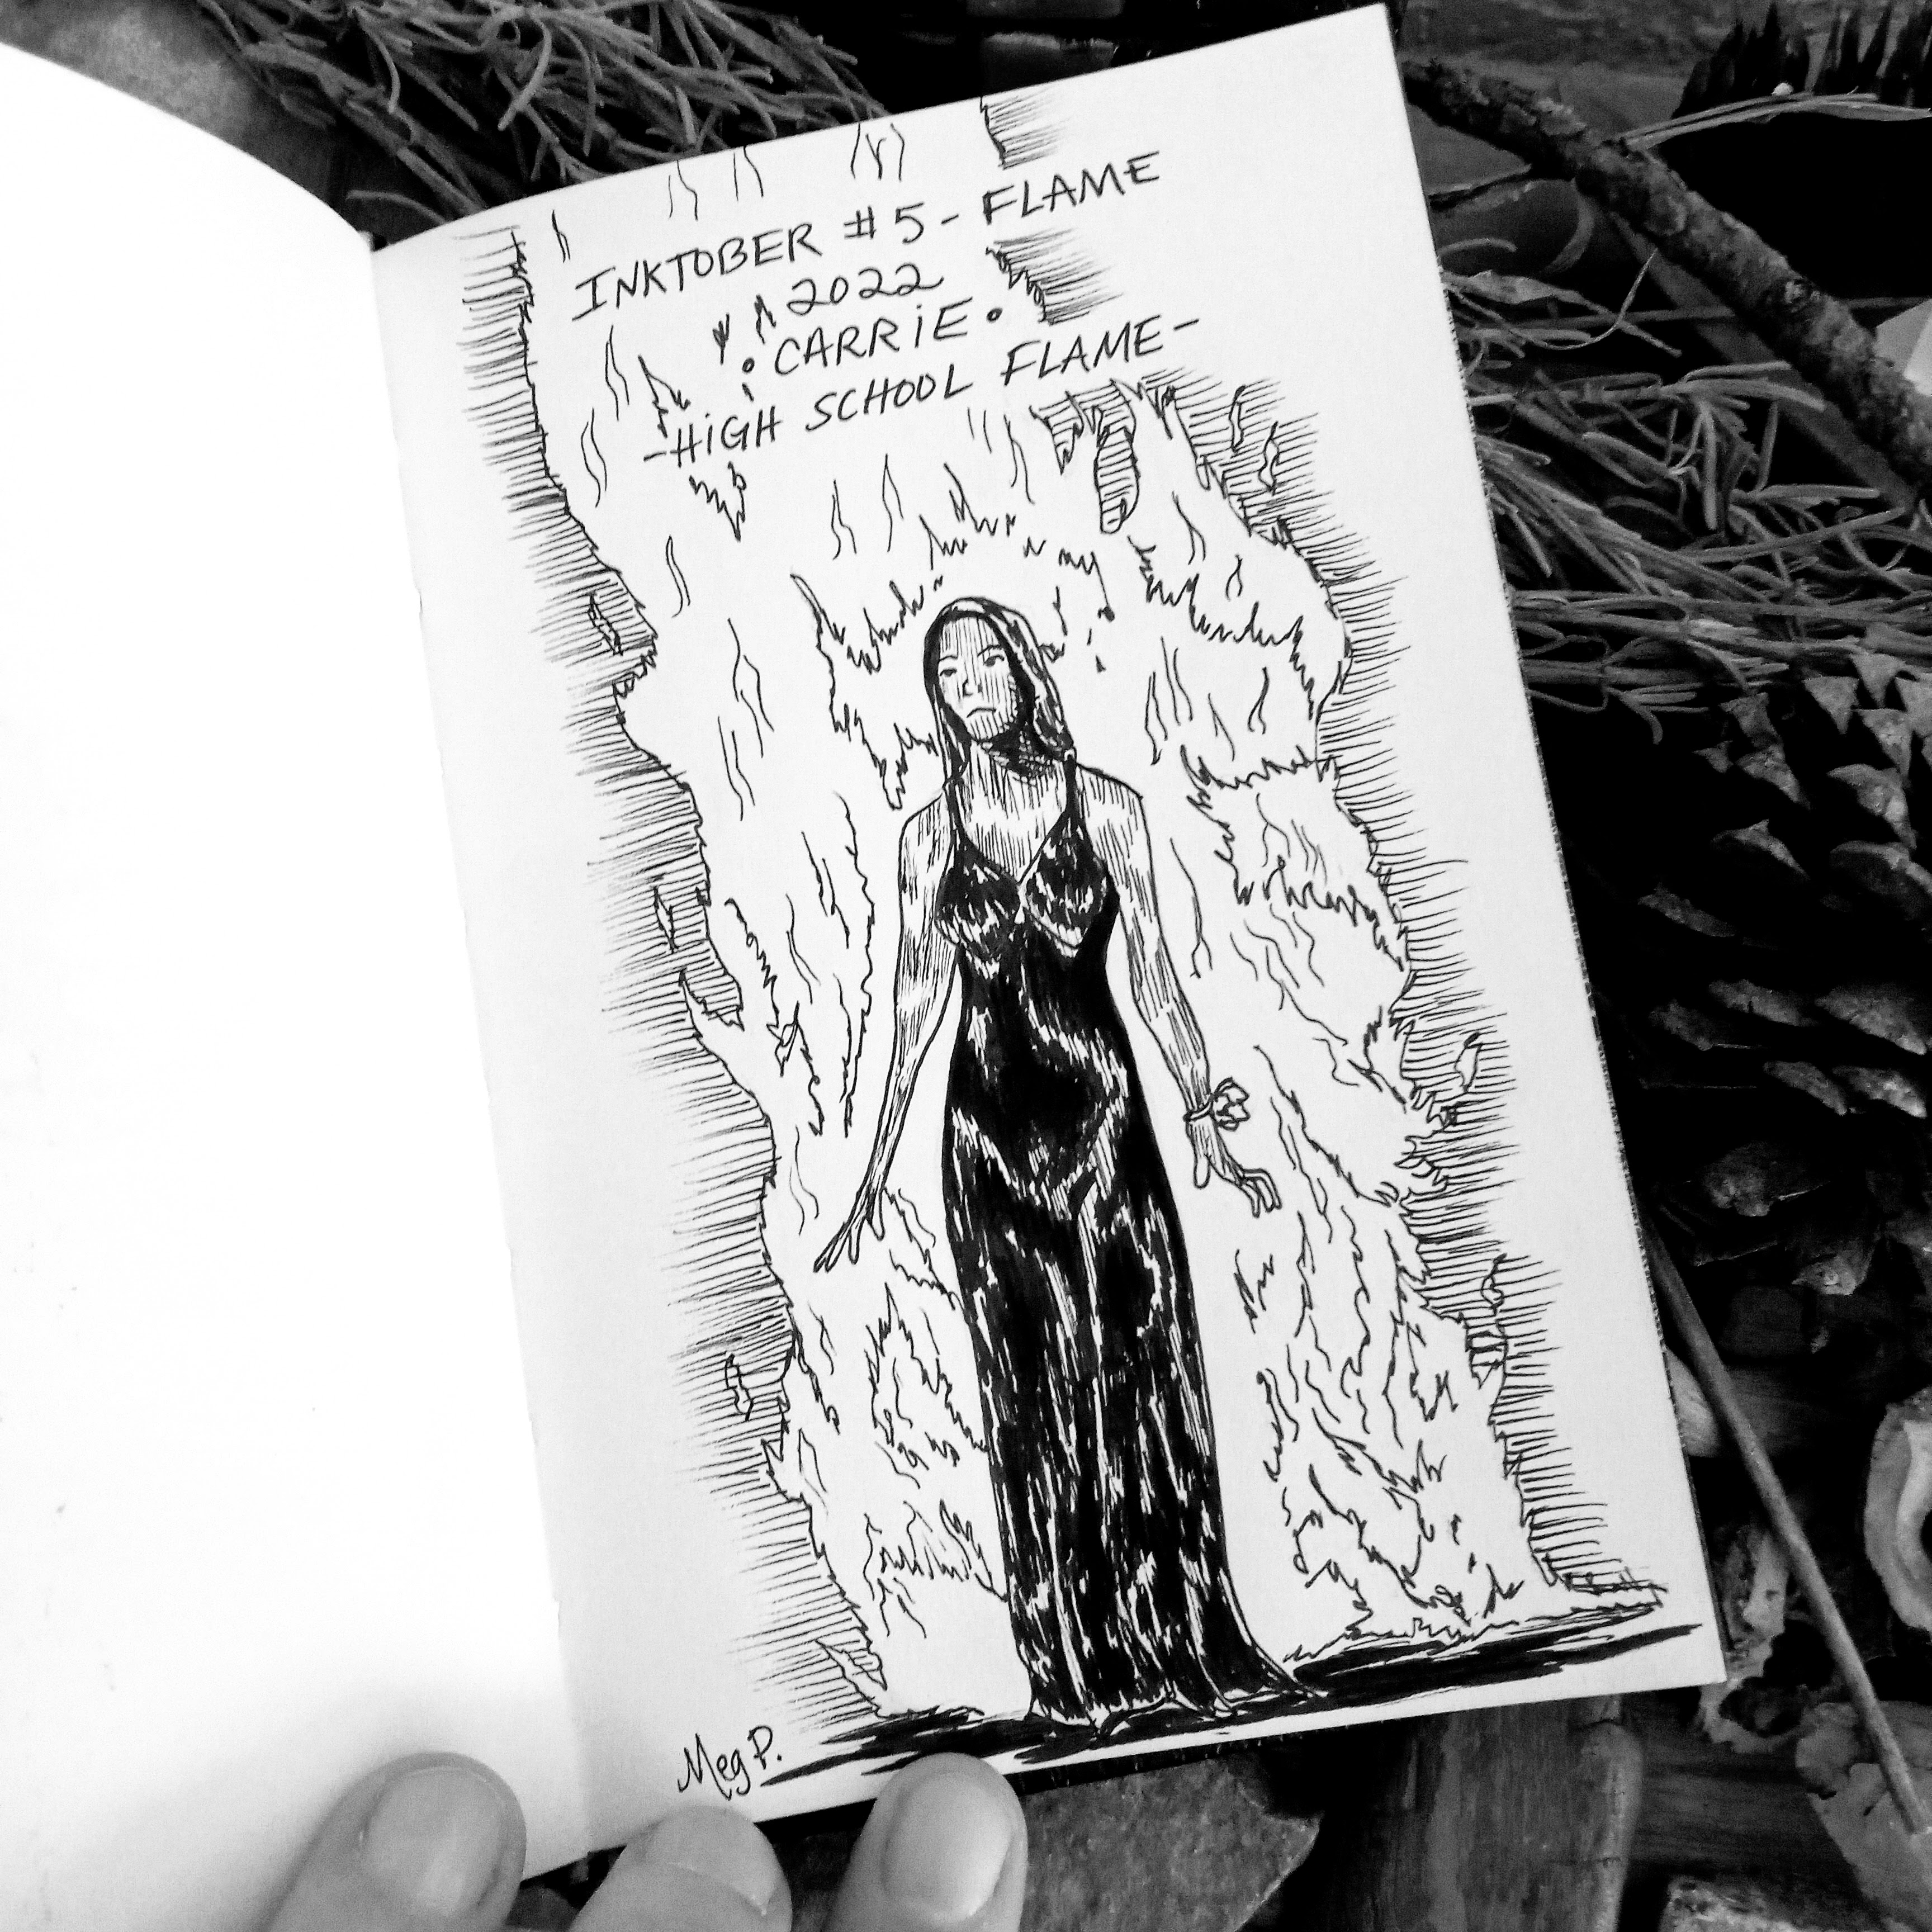 INKTOBER # 5 - FLAME
2022
• CARRiE •
-HiGH SCHOOL FLAME-
Meg P.